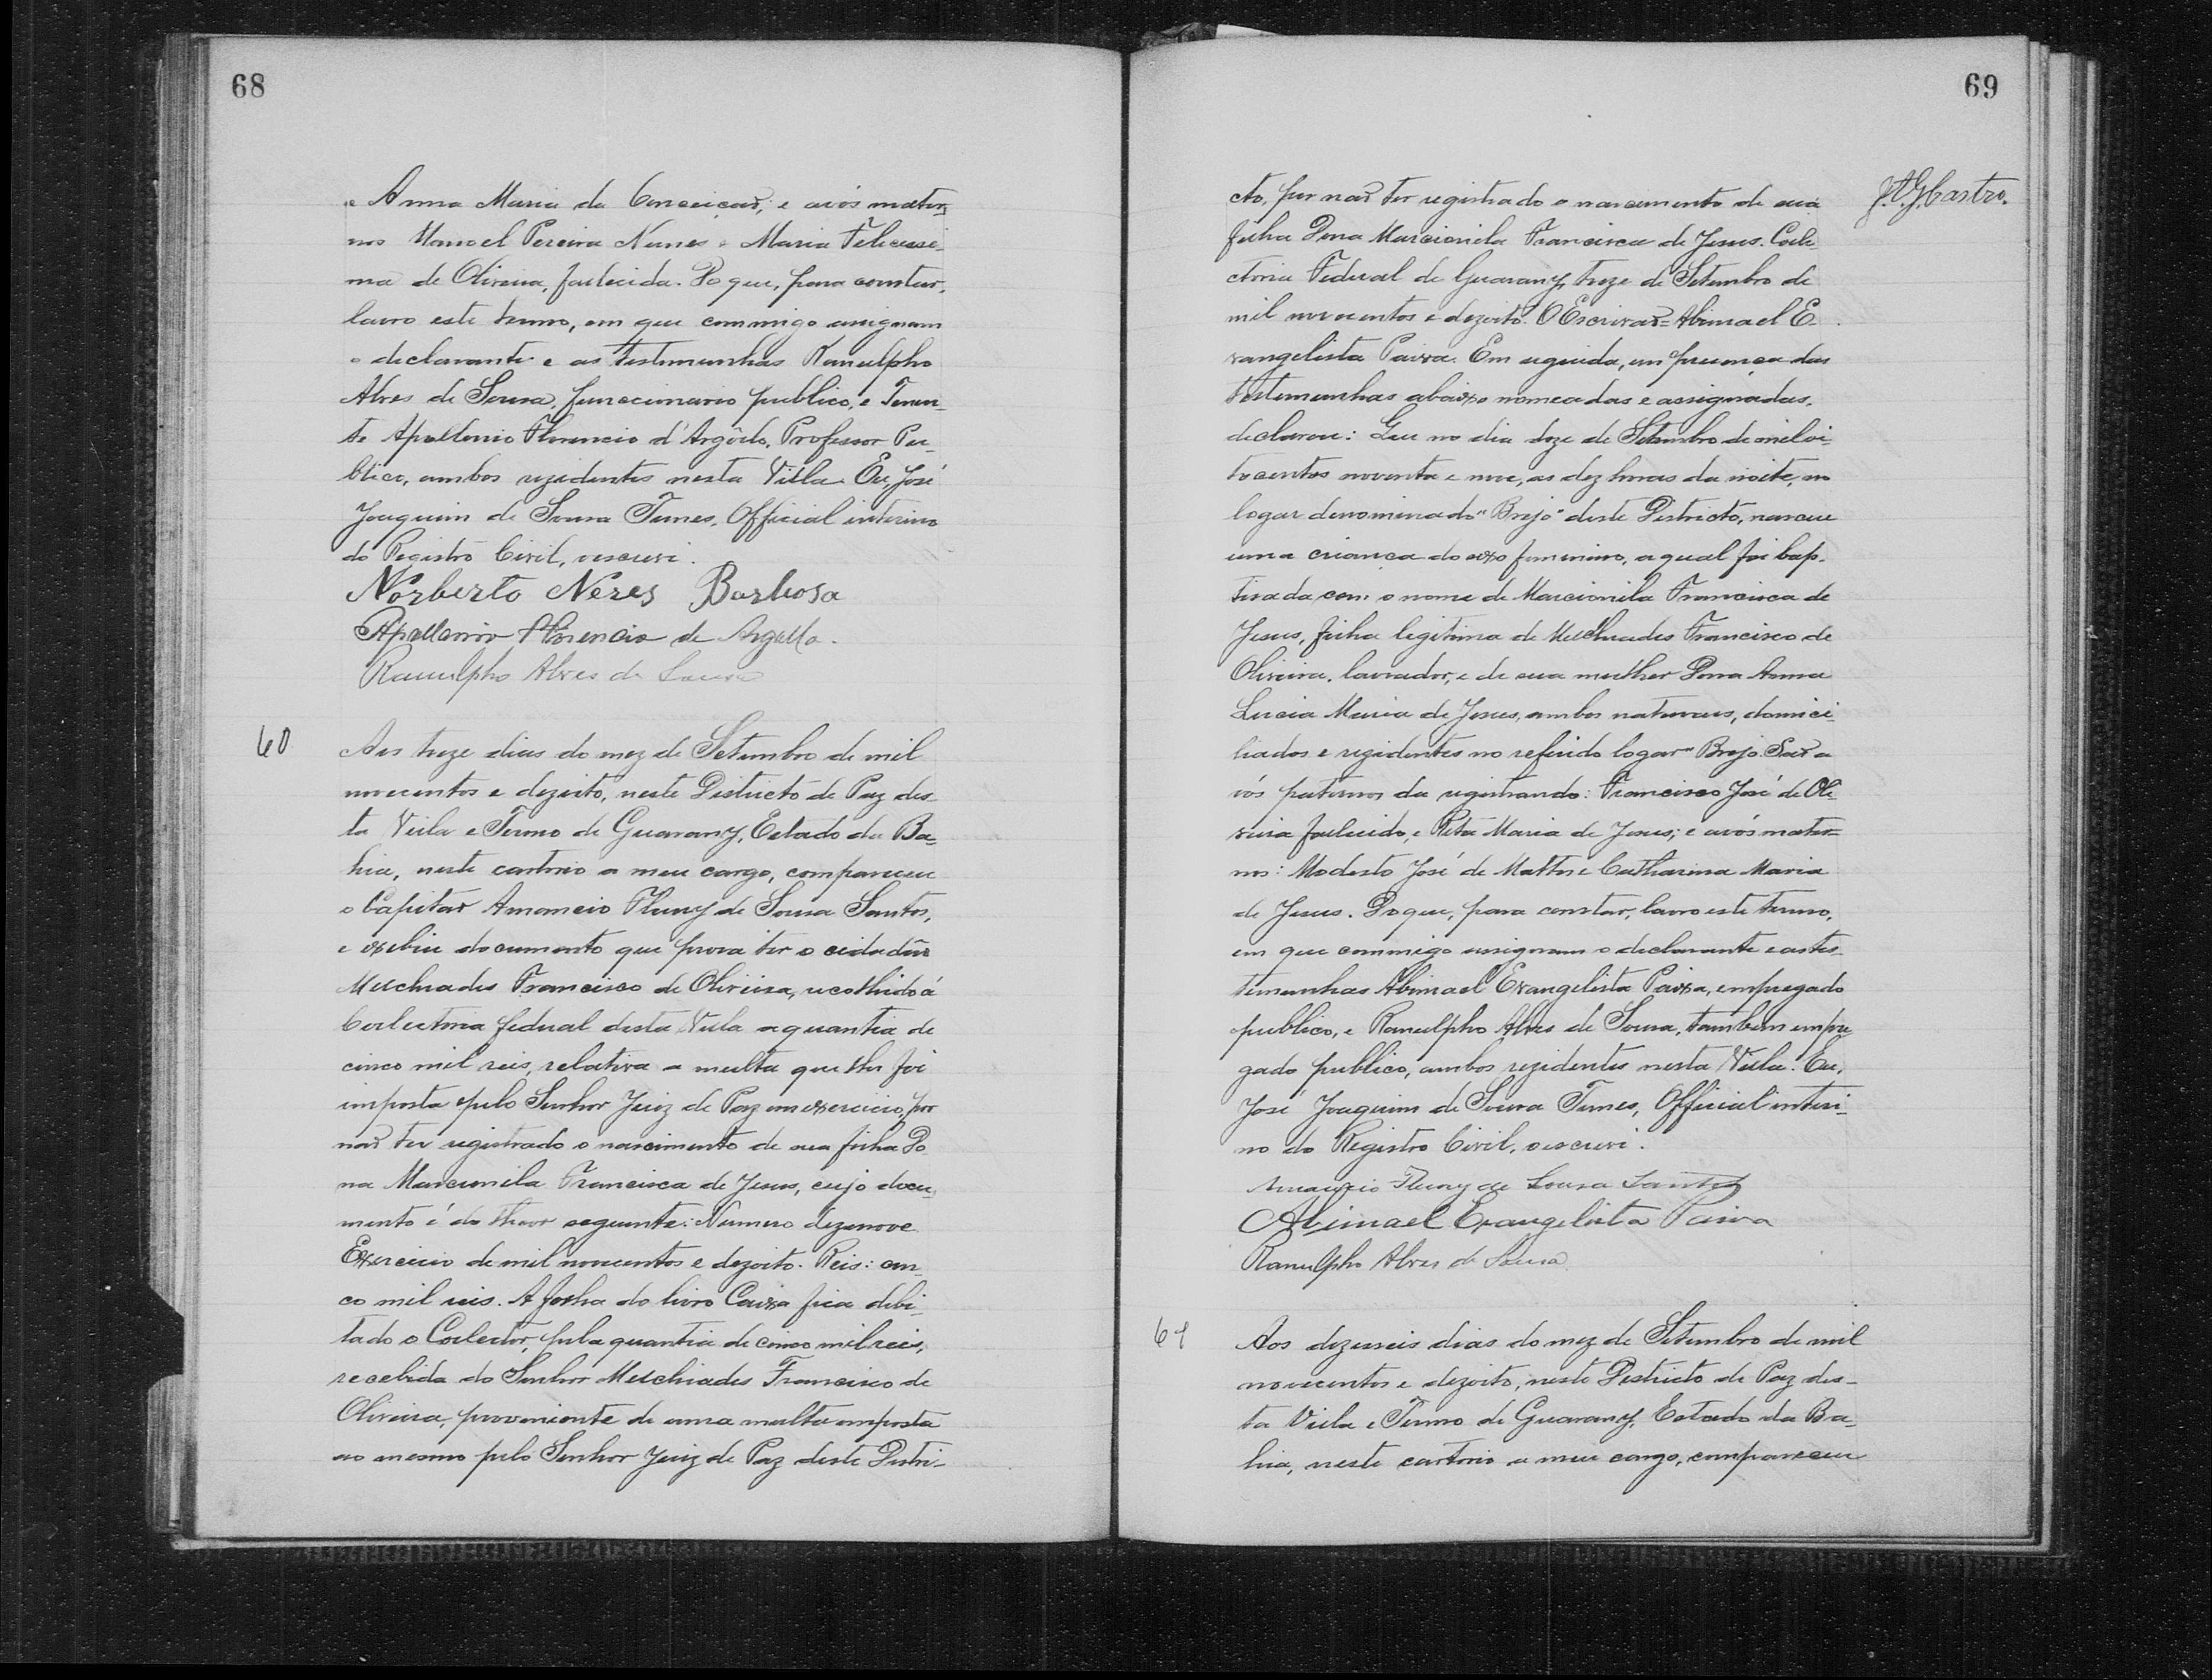 68
e Anna Maria da Conceição; e avós mater-
nos Manoel Pereira Nunes e Maria Felicissi-
ma de Oliveira, fallecida. Do que, para constar,
lavro este termo, em que commigo assignam
o declarante e as testimunhas Ranulpho
Alves de Sousa, funccionario publico, e Tenen-
te Apollonio Florencio d'Argôllo, Professor Pu-
blico, ambos rezidentes nesta Villa. Eu, José
Joaquim de Sousa Tunes, Official interino
do Registro Civil, o escrevi.
Norberto Neres Barbosa
Apollonio Florencio de Argollo.
Ranulpho Alves de Sousa
60
Aos treze dias do mez de Setembro de mil
novecentos e dezoito, neste Districto de Paz des-
ta Villa e Termo de Guarany, Estado da Ba-
hia, neste cartorio a meu cargo, compareceu
o Capitão Amancio Fluny de Sousa Santos,
e exebiu documento que prova ter o cidadão
Melchiades Francisco de Oliveira, recolhido á
Collectoria federal desta Villa a quantia de
cinco mil reis, relativa a multa que lhe foi
imposta pelo Senhor Juiz de Paz em exercicio, por
não ter registrado o nascimento de sua filha Do
na Marcionila Francisca de Jesus, cujo docu-
mento é do theor seguinte: Numero dezenove
Exercicio de mil novecentos e dezoito. Reis: cin-
co mil reis. A folha do livro Caixa fica debi-
tado o Collector, pela quantia de cinco mil reis,
recebida do Senhor Melchiades Francisco de
Oliveira, proveniente de uma multa imposta
ao mesmo pelo Senhor Juiz de Paz deste Distri-
69
cto, por não ter registrado o nascimento de sua
filha Dona Marcionila Francisca de Jesus. Colle
ctoria Federal de Guarany, treze de Setembro de
mil novecentos e dezoito. O Escrivão = Abimael E-
vangelista Paiva. Em seguida, em presença das
testemunhas abaixo nomeadas e assignadas,
declarou: Que no dia doze de Setembro de mil oi-
tocentos noventa e nove, as dez horas da noite, no
logar denominado "Brejo" deste Districto, nasceu
uma criança do sexo feminino, a qual foi bap-
tisada com o nome de Marcionila Francisca de
Jesus, filha legitima de Melchiades Francisco de
Oliveira, lavrador, e de sua mulher Dona Anna
Lucia Maria de Jesus, ambos naturaes, domici-
liados e rezidentes no referido logar "Brejo. São a
vós paternos da registrando: Francisco José de Oli-
veira fallecido, e Rita Maria de Jesus; e avós mater-
nos: Modesto José de Mattos e Catharina Maria
de Jesus. Do que, para constar, lavro este termo,
em que commigo assignam o declarante e as tes-
timunhas Abimael Evangelista Paiva, empregado
publico, e Ranulpho Alves de Sousa, tambem empre
gado publico, ambos rezidentes nesta Villa. Eu,
José Joaquim de Sousa Tunes, Official interi-
no do Registro Civil, o escrevi.
Amancio Fluny de Sousa Santos
Abimael Evangelista Paiva
Ranulpho Alves de Sousa
61
Aos dezeseis dias do mez de Setembro de mil
novecentos e dezoito, neste Districto de Paz des-
ta Villa e Termo de Guarany, Estado da Ba-
hia, neste cartorio a meu cargo, compareceu